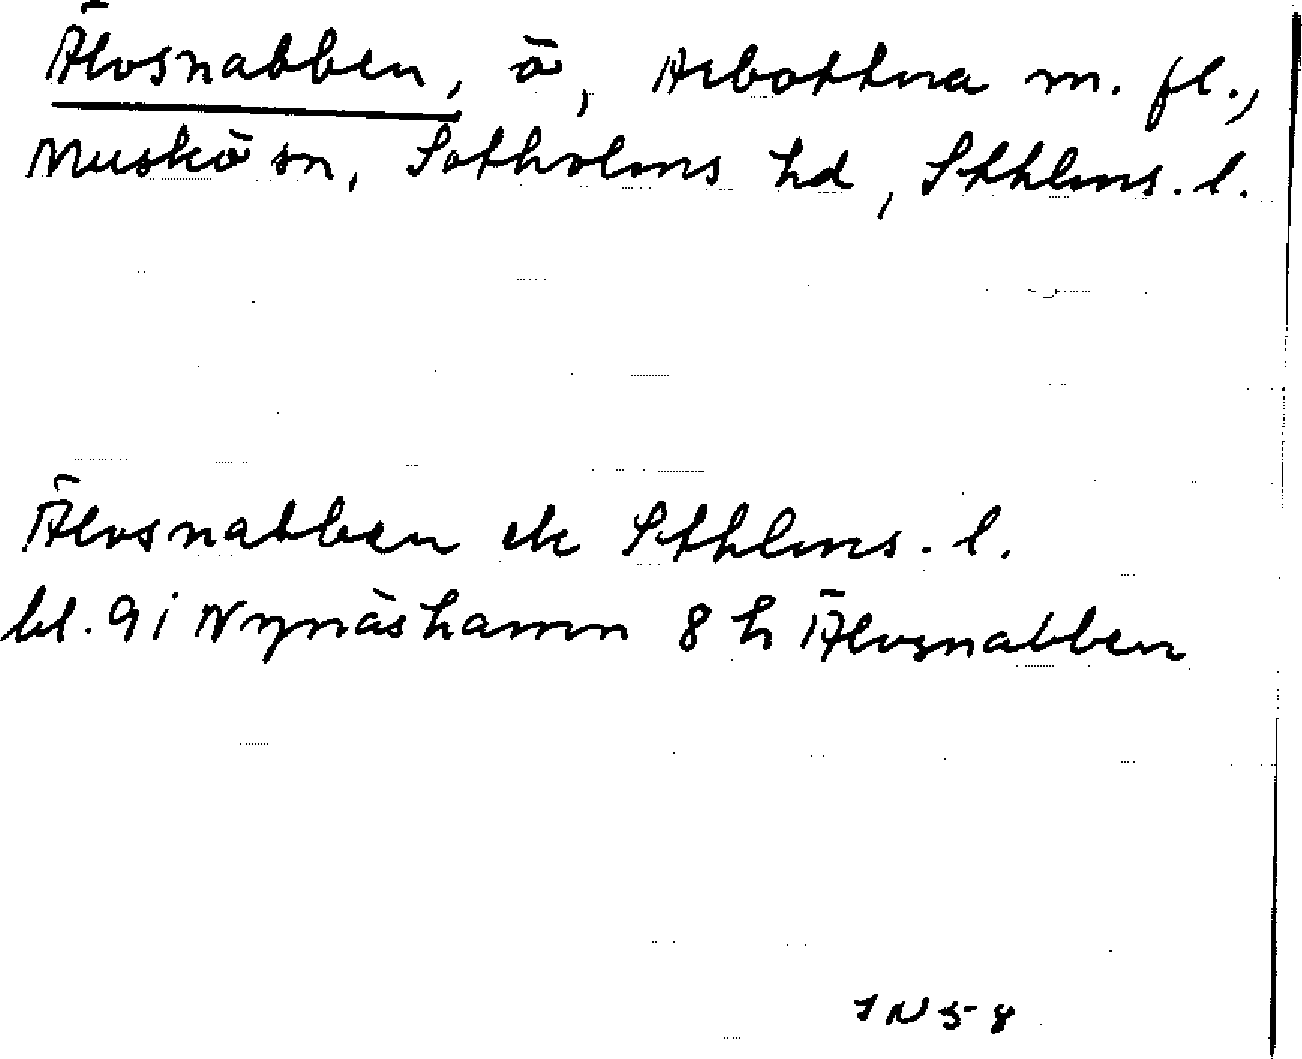 Älvsnabben, ö, Arbottna m. fl.,
Muskö sn, Sotholms hd, Sthlms. l.
Älvsnabben ek Sthlms. l.
bl. 9 i Nynäshamn 8 h Älvsnabben
IN 58